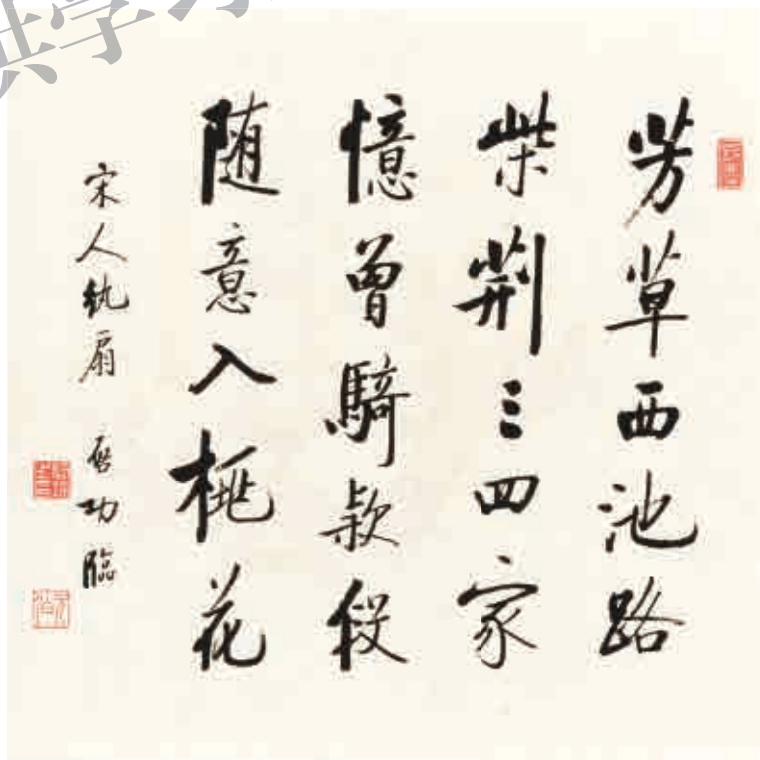 芳草西池路
柴荆三四家
憶曾騎款段
随意入桃花
宋人纨扇 啓功臨
供学习